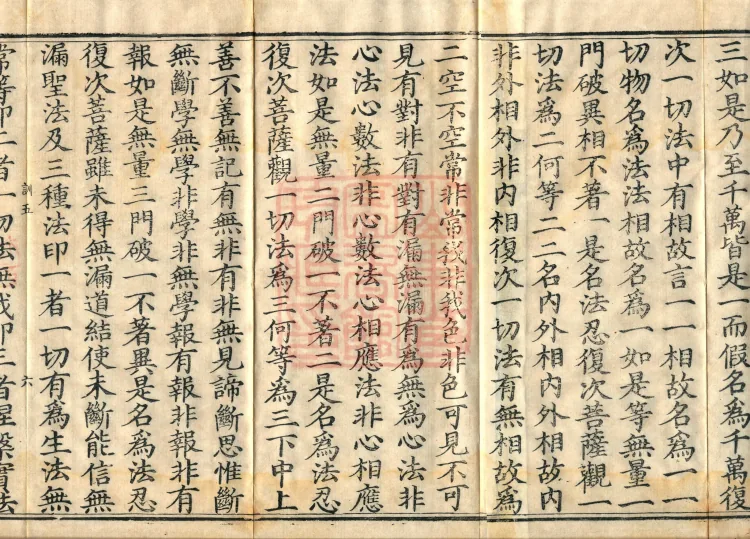 三如是乃至千萬皆是一而假名為千萬復
次一切法中有相故言一一相故名為一一
切物名為法法相故名為一如是等無量一
門破異相不著一是名法忍復次菩薩觀一
切法為二何等二二名內外相內外相故內
非外相外非內相復次一切法有無相故為
二空不空常非常我非我色非色可見不可
見有對非有對有漏無漏有為無為心法非
心法心數法非心數法心相應法非心相應
法如是無量二門破一不著二是名為法忍
復次菩薩觀一切法為三何等為三下中上
善不善無記有無非有非無見諦斷思惟斷
無斷學無學非學非無學報有報非報非有
報如是無量三門破一不著異是名為法忍
復次菩薩雖未得無漏道結使未斷能信無
漏聖法及三種法印一者一切有為生法無
訓五 六
常等印二者一切法無我印三者涅槃實法